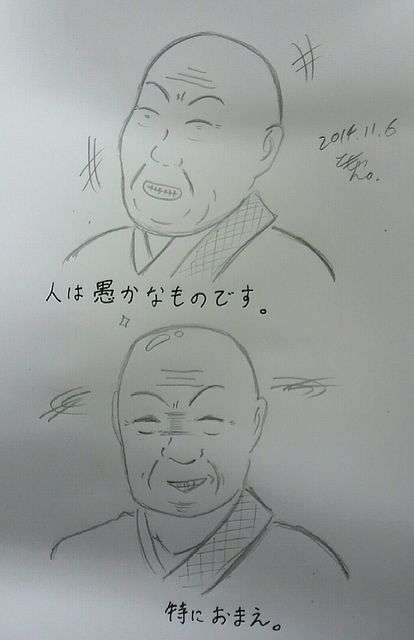 2014.11.6
人は愚かなものです。
特におまえ。